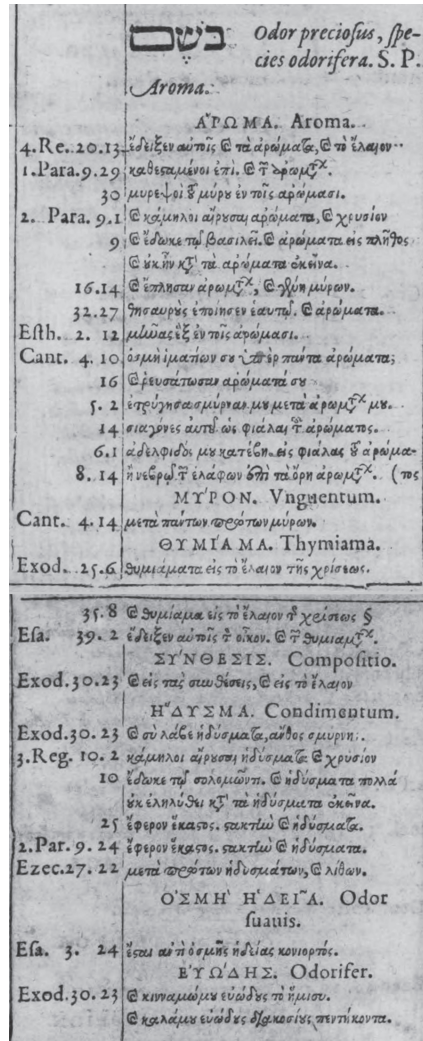 בֹּשֶׂם Odor preciosus, spe-
cies odorifera. S. P.
Aroma.
ΑΡΩΜΑ. Aroma.
4. Re. 20.13 ἔδειξεν αὐτοῖς καὶ τὰ ἀρώματα, καὶ τὸ ἔλαιον
1. Para. 9.29 καθεσταμένοι ἐπὶ. καὶ τῶν ἀρωμάτων.
30 μυρεψοὶ τοῦ μύρου ἐν τοῖς ἀρώμασι.
2. Para. 9.1 καὶ κάμηλοι αἴρουσαι ἀρώματα, καὶ χρυσίον
9 καὶ ἔδωκε τῷ βασιλεῖ. καὶ ἀρώματα εἰς πλῆθος
καὶ οὐκ ἦν κατὰ τὰ ἀρώματα ἐκεῖνα.
16.14 καὶ ἔπλησαν ἀρωμάτων, καὶ γένη μύρων.
32.27 θησαυροὺς ἐποίησεν ἑαυτῷ. καὶ ἀρώματα.
Esth. 2. 12 μῆνας ἓξ ἐν τοῖς ἀρώμασι.
Cant. 4. 10 ὀσμὴ ἱματίων σου ὑπὲρ πάντα ἀρώματα;
16 καὶ ῥευσάτωσαν ἀρώματά σου
5. 2 ἐτρύγησα σμύρναν μου μετὰ ἀρωμάτων μου.
14 σιαγόνες αὐτοῦ ὡς φιάλαι τοῦ ἀρώματος.
6.1 ἀδελφιδός μου κατέβη. εἰς φιάλας τοῦ ἀρώμα-
8. 14 ἢ νεβρῷ τῶν ἐλάφων ἐπὶ τὰ ὄρη ἀρωμάτων. (τος
ΜΥΡΟΝ. Vnguentum.
Cant. 4. 14 μετὰ πάντων πρώτων μύρων.
ΘΥΜΙΑΜΑ. Thymiama.
Exod. 25.6 θυμιάματα εἰς τὸ ἔλαιον τῆς χρίσεως.
35.8 καὶ θυμίαμα εἰς τὸ ἔλαιον τῆς χρίσεως §
Esa. 39. 2 ἔδειξεν αὐτοῖς τὸν οἶκον. καὶ τῶν θυμιαμάτων.
ΣΥΝΘΕΣΙΣ. Compositio.
Exod. 30.23 καὶ εἰς τὰς συνθέσεις, καὶ εἰς τὸ ἔλαιον
ΗΔΥΣΜΑ. Condimentum.
Exod. 30.23 καὶ σὺ λάβε ἡδύσματα, ἄνθος σμύρνης.
3. Reg. 10. 2 κάμηλοι αἴρουσαι ἡδύσματα καὶ χρυσίον
10 ἔδωκε τῷ σολομῶντι. καὶ ἡδύσματα πολλά
οὐκ ἐληλύθει κατὰ τὰ ἡδύσματα ἐκεῖνα.
25 ἔφερον ἕκαστος. στακτὴν καὶ ἡδύσματα.
2. Par. 9. 24 ἔφερον ἕκαστος. στακτὴν καὶ ἡδύσματα.
Ezec. 27. 22 μετὰ πρώτων ἡδυσμάτων, καὶ λίθων.
ΟΣΜΗ ΗΔΕΙΑ. Odor
suauis.
Esa. 3. 24 ἔσται ἀντὶ ὀσμῆς ἡδείας κονιορτός.
ΕΥΩΔΗΣ. Odorifer.
Exod. 30. 23 καὶ κινναμώμου εὐώδους τὸ ἥμισυ.
καὶ καλάμου εὐώδους διακοσίους πεντήκοντα.